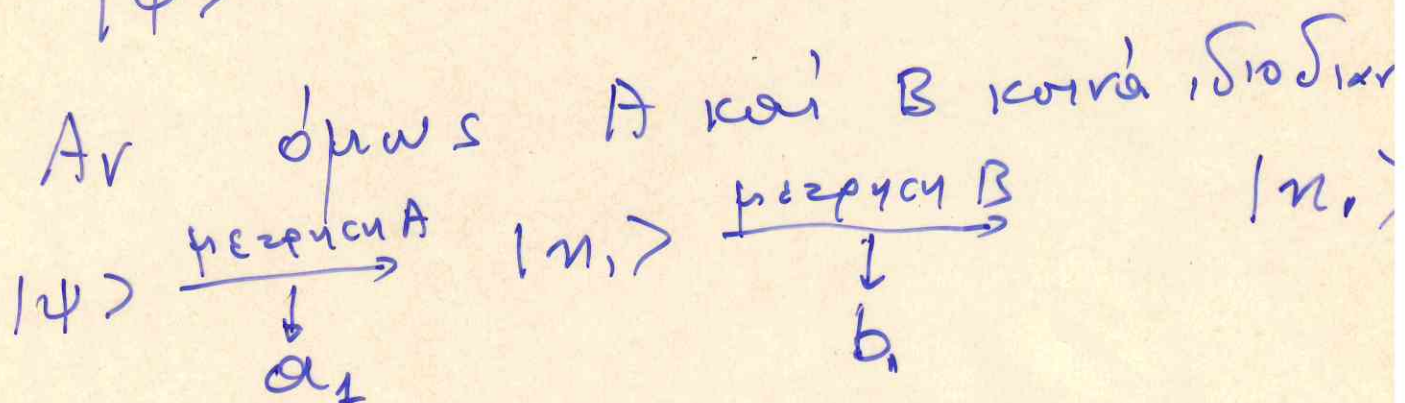 |ψ>
Αν όμως Α και Β κοινά ιδιοδιαν
|ψ> μετρηση Α |n₁> μετρηση Β |n₁>
a₁ b₁